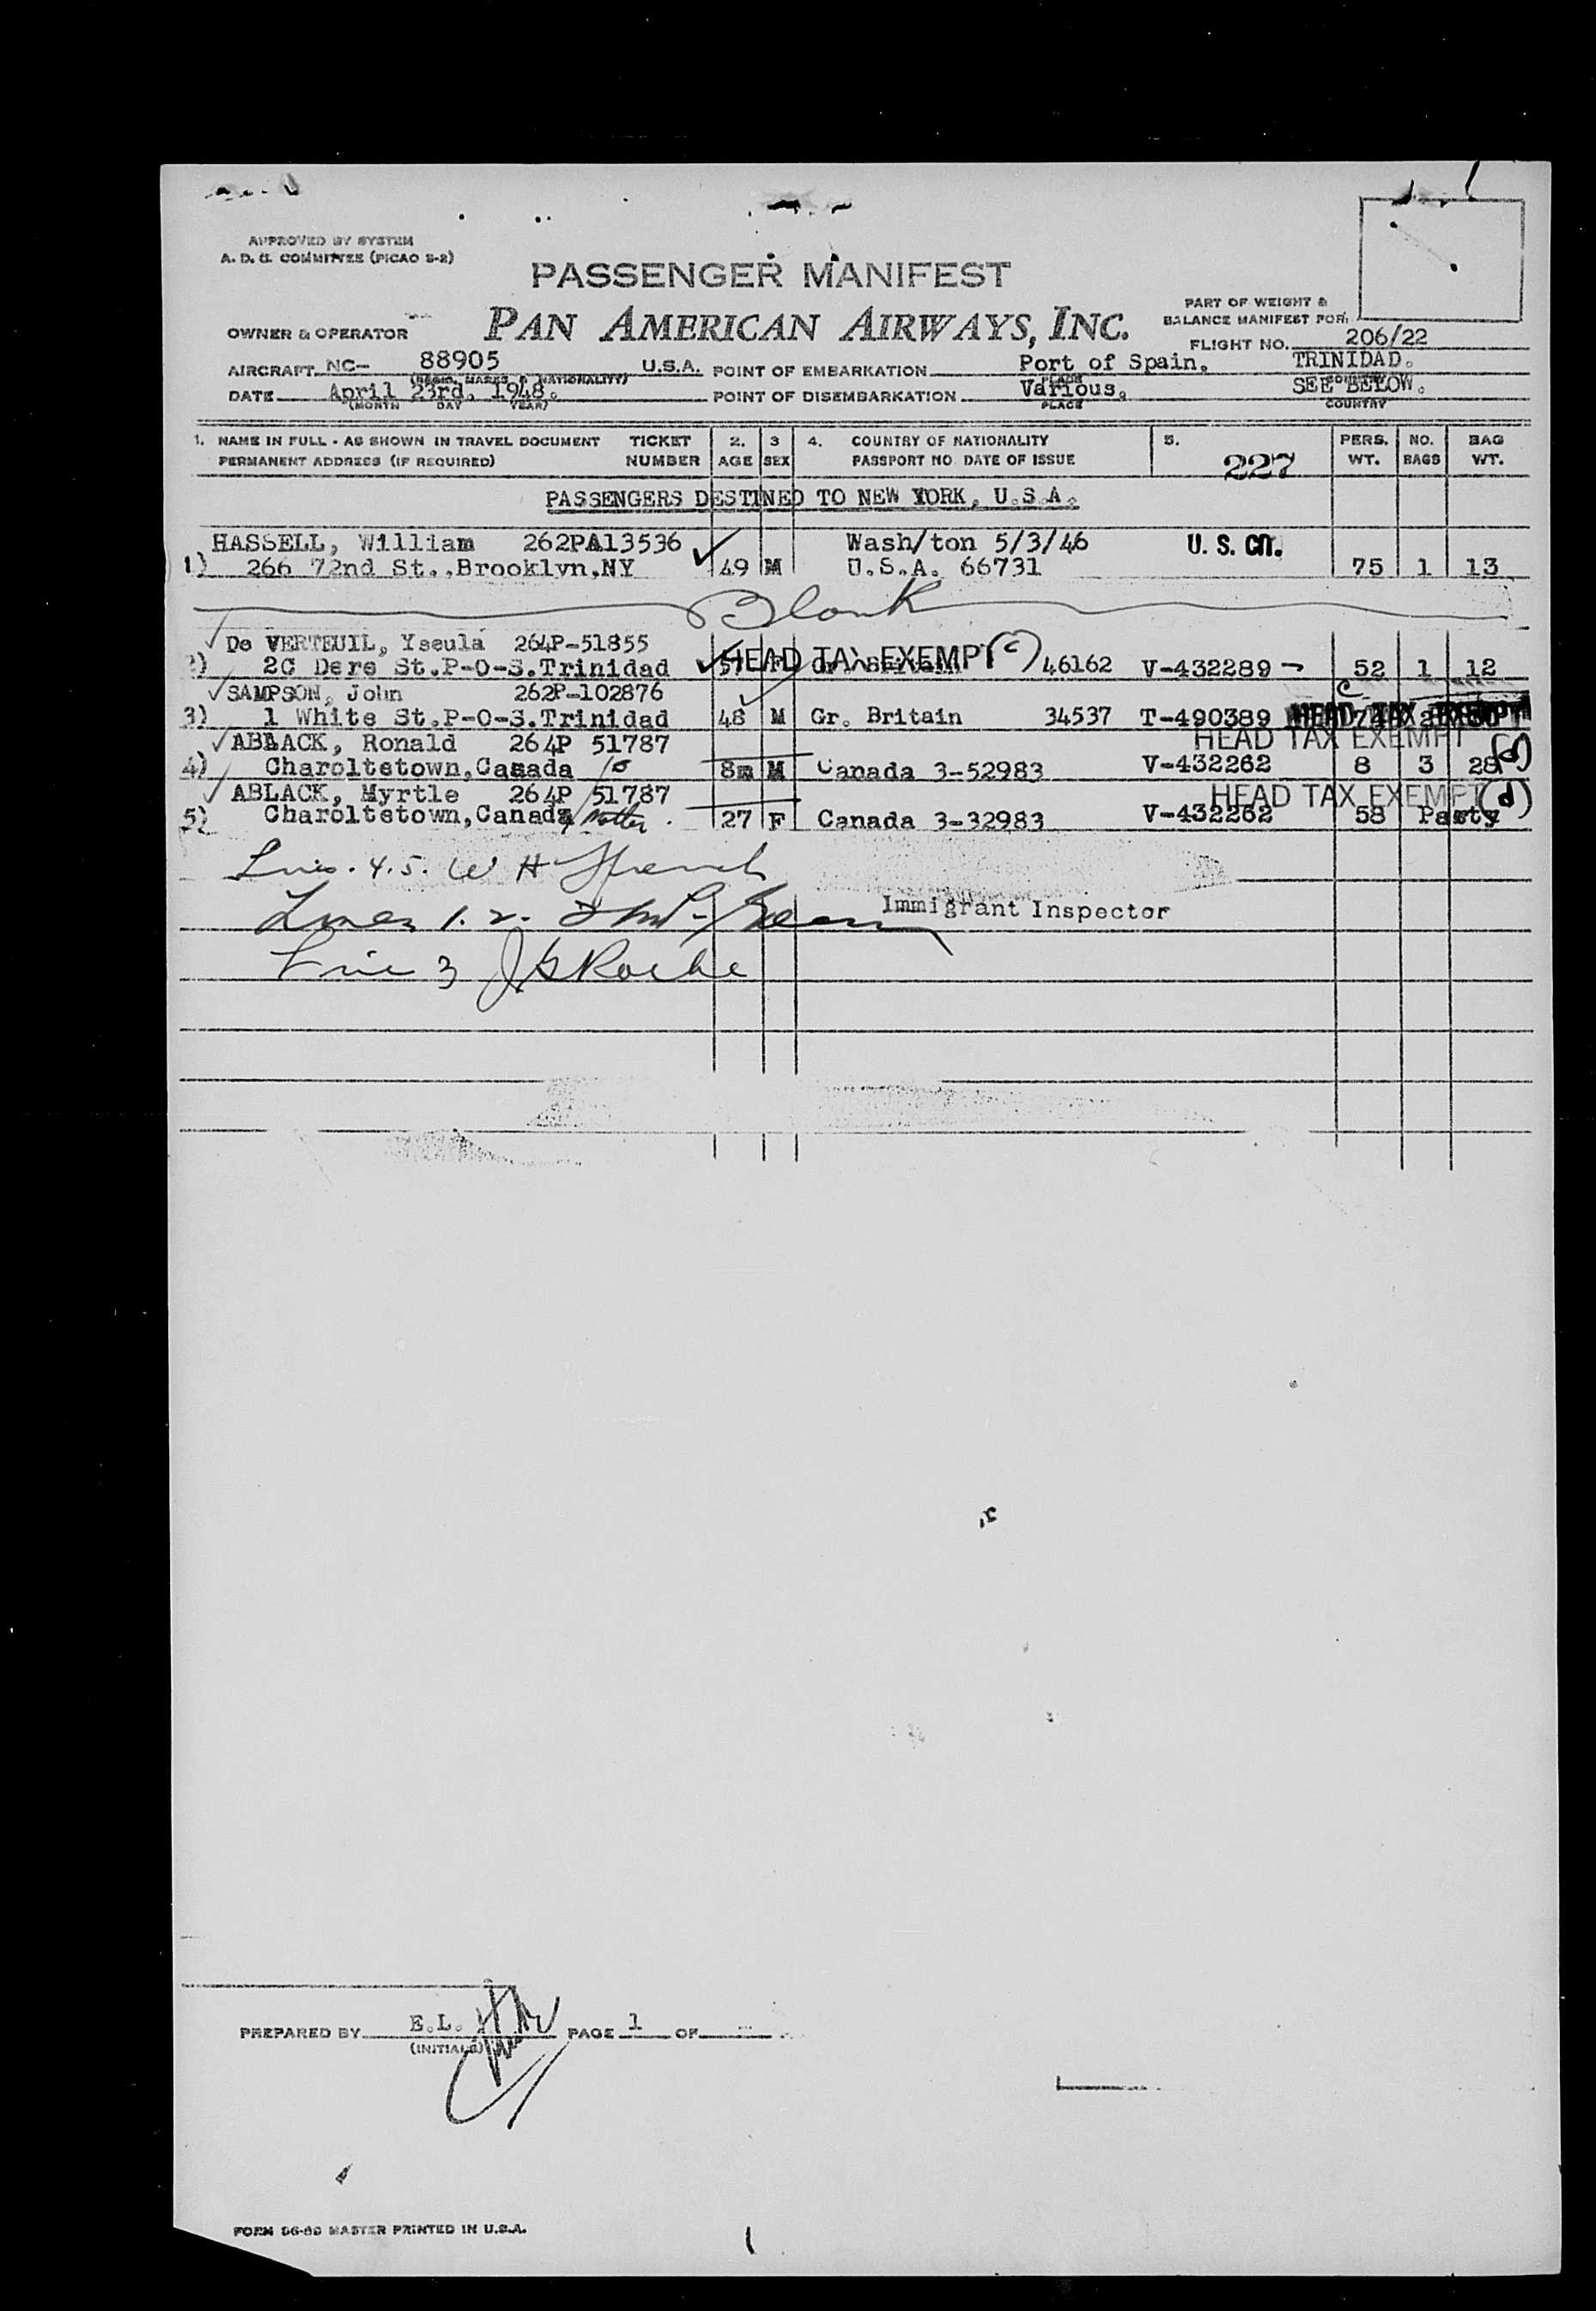 APPROVED BY SYSTEM
A. D. G. COMMITTEE (PICAO S-2)
PASSENGER MANIFEST
PAN AMERICAN AIRWAYS, INC.
OWNER & OPERATOR
PART OF WEIGHT &
BALANCE MANIFEST FOR:
FLIGHT NO. 206/22
AIRCRAFT NC- 88905 U.S.A. POINT OF EMBARKATION Port of Spain, TRINIDAD.
(REGIS. MARKS & NATIONALITY) PLACE
DATE April 23rd. 1948. POINT OF DISEMBARKATION Various. SEE BELOW.
(MONTH DAY YEAR) PLACE COUNTRY
1. NAME IN FULL - AS SHOWN IN TRAVEL DOCUMENT TICKET 2. 3 4. COUNTRY OF NATIONALITY 5. PERS. NO. BAG
PERMANENT ADDRESS (IF REQUIRED) NUMBER AGE SEX PASSPORT NO. DATE OF ISSUE 227 WT. BAGS WT.
PASSENGERS DESTINED TO NEW YORK, U.S.A.
HASSELL, William 262PA13536 Wash/ton 5/3/46 U. S. CIT.
1) 266 72nd St.,Brooklyn,NY 49 M U.S.A. 66731 75 1 13
Blank
De VERTEUIL, Yseula 264P-51855 HEAD TAX EXEMPT (c)
2) 2C Dere St.P-O-S.Trinidad 57 F Gr. Britain 46162 V-432289 52 1 12
SAMPSON, John 262P-102876 c
3) 1 White St.P-O-S.Trinidad 48 M Gr. Britain 34537 T-490389 HEAD TAX EXEMPT
ABLACK, Ronald 264P 51787 HEAD TAX EXEMPT (d)
4) Charoltetown,Canada 8m M Canada 3-52983 V-432262 8 3 28
ABLACK, Myrtle 264P 51787 HEAD TAX EXEMPT (d)
5) Charoltetown,Canada 27 F Canada 3-32983 V-432262 58 Party
4.5. W H French
Immigrant Inspector
Lines 1. 2.
Line 3 J Roche
PREPARED BY E.L. PAGE 1 OF
(INITIALS)
FORM 96-89 MASTER PRINTED IN U.S.A.